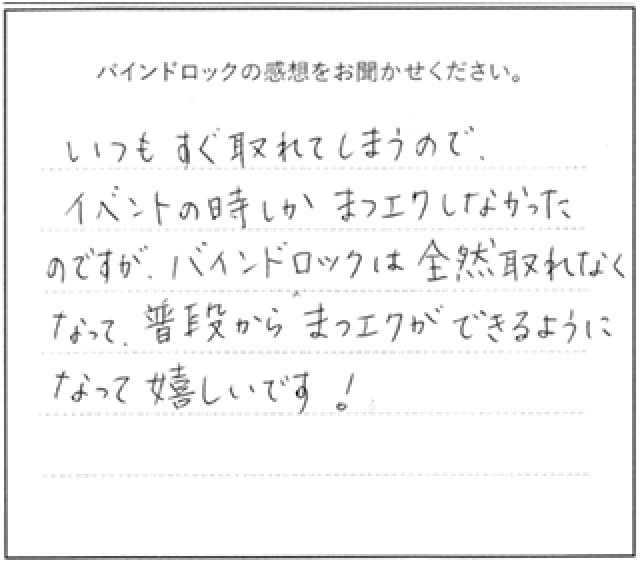 バインドロックの感想をお聞かせください。
いつもすぐ取れてしまうので、
イベントの時しかまつエクしなかった
のですが、バインドロックは全然取れなく
なって、普段からまつエクができるように
なって嬉しいです!